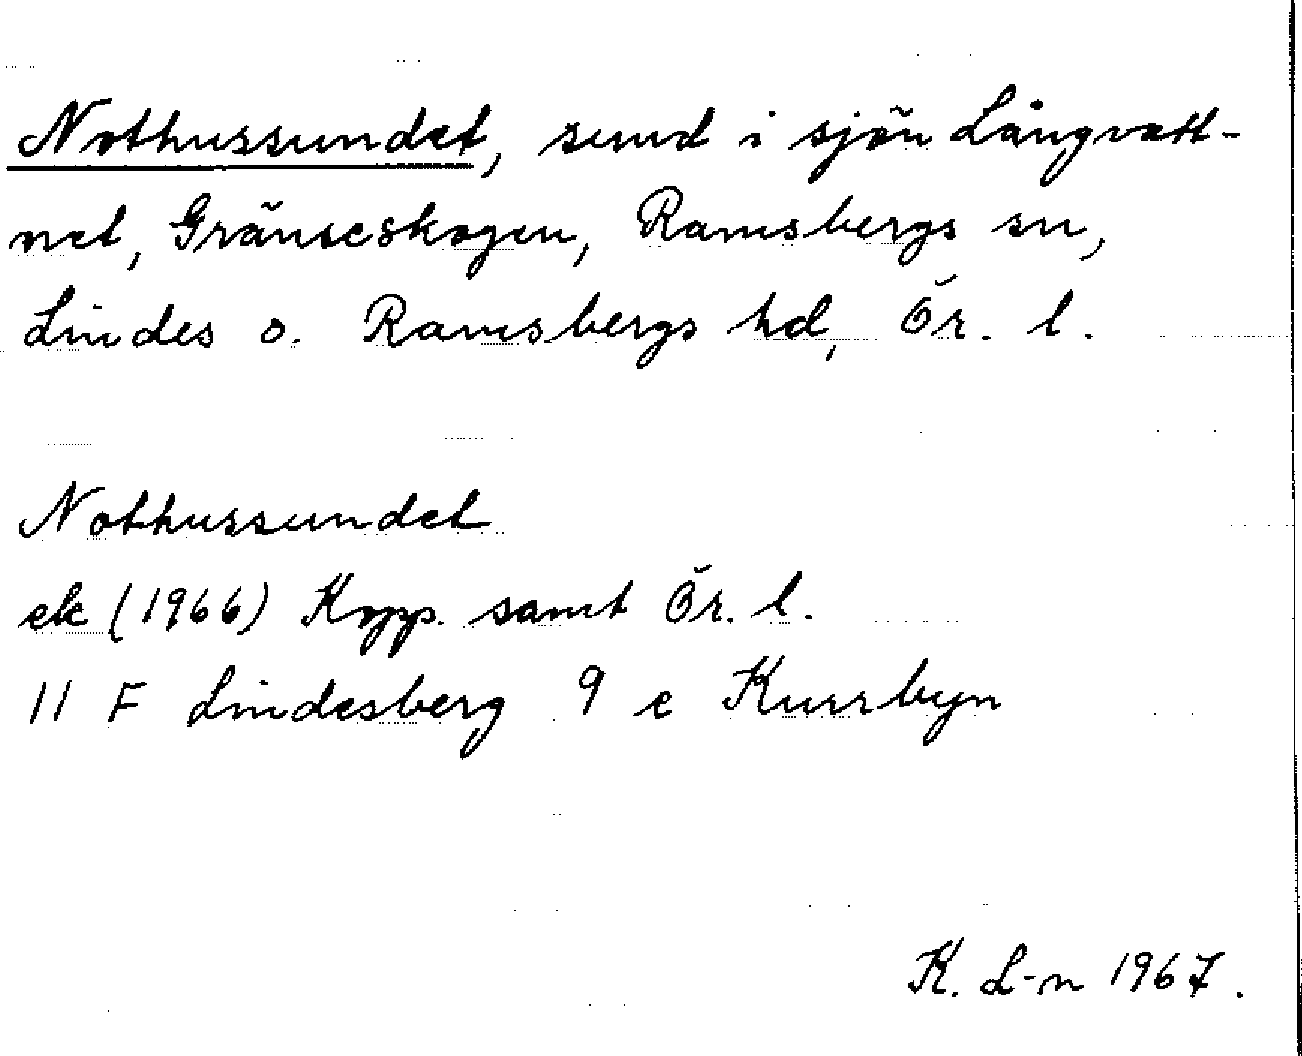 Nothussundet, sund i sjön Långvatt-
net, Gränseskogen, Ramsbergs sn,
Lindes o. Ramsbergs hd, Ör. l.
Nothussundet
ek (1966) Kopp. samt Ör. l.
11 F Lindesberg 9 e Kurrbyn
K. L-n 1967.